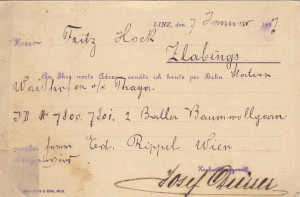 LINZ, den 7 Januar 1897
Herrn
Fritz Hock
Zlabings
An Ihre werte Adresse sandte ich heute per Bahn Station
Waidhofen a/d Thaya
JD # 7800. 7801. 2 Ballen Baumwollgarn
Herrn Ed. Rippel Wien
Hochachtungsvoll
Josef